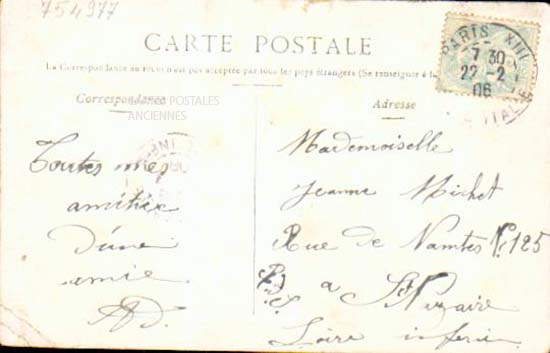 754977
CARTE POSTALE
La Correspondance au recto n'est pas acceptée par tous les pays étrangers (Se renseigner à la
PARIS XIII
7 30
22 - 2
06
Correspondance
CARTES POSTALES
ANCIENNES
Adresse
Toutes mes
amitiés
d'une
amie
AD.
Mademoiselle
Jeanne Michet
Rue de Nantes No 125
a St Nazaire
Loire inferie